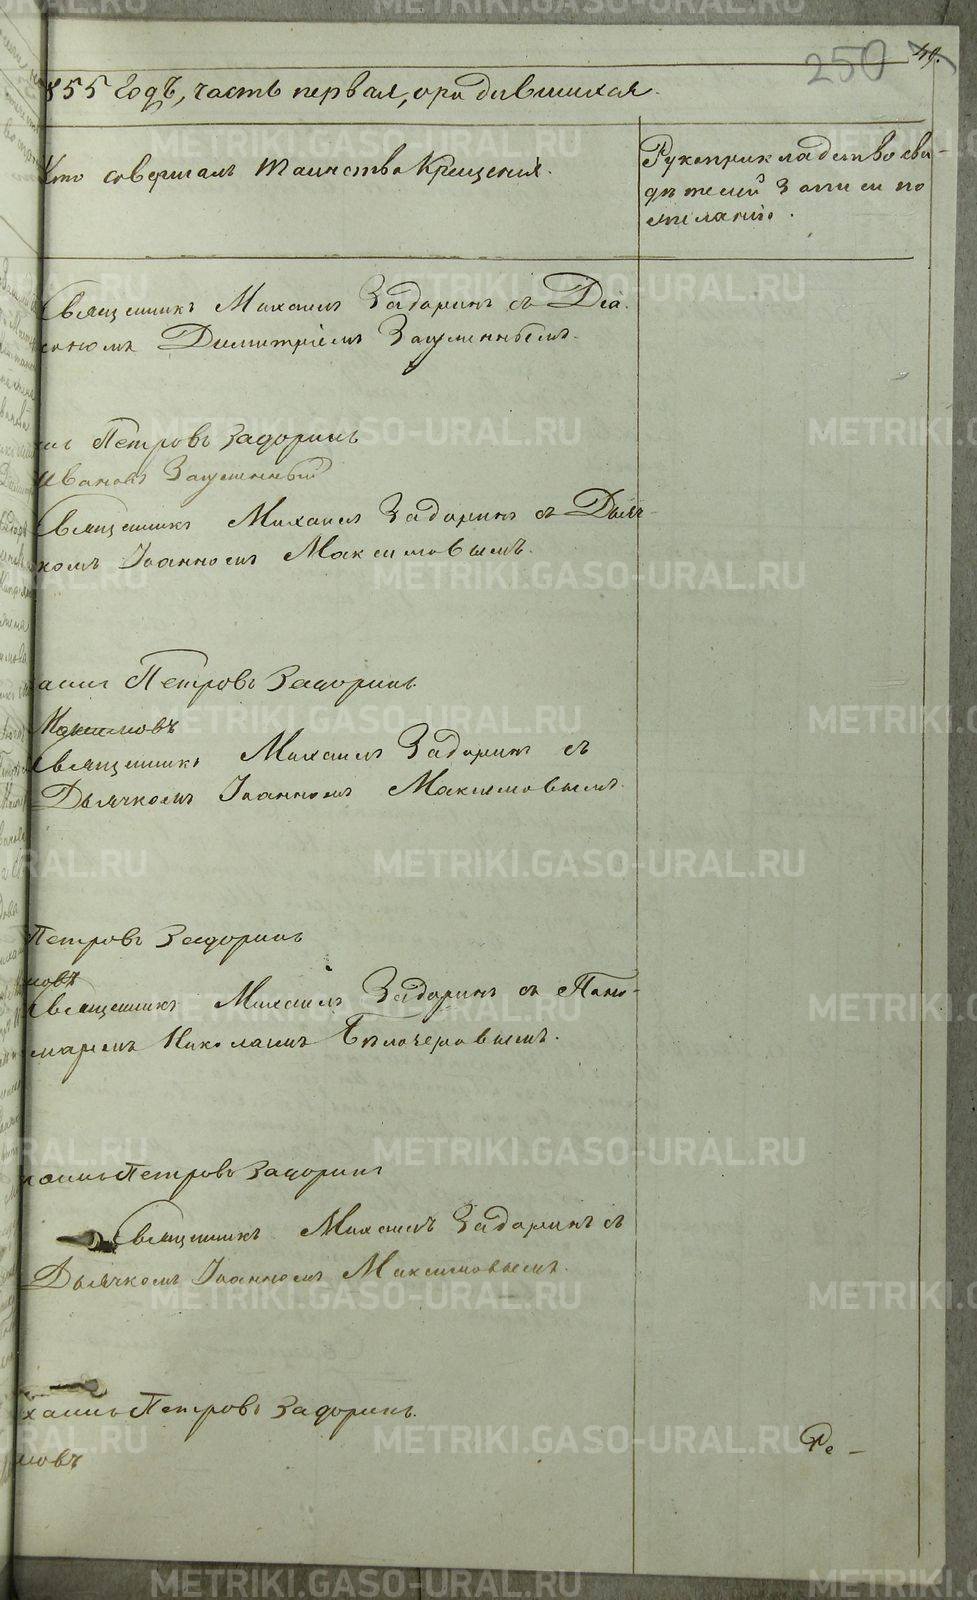 250 49.
855 годъ, часть первая, о родившихся.
Кто совершалъ таинство Крещенія.
Рукоприкладство сви-
дѣтелей записи по
желанію.
Священникъ Михаилъ Задоринъ съ Діа-
кономъ Димитріемъ Загуменнымъ.
илъ Петровъ Задоринъ
Ивановъ Загуменный
Священникъ Михаилъ Задоринъ съ Дьяч-
комъ Іоанномъ Максимовымъ.
хаилъ Петровъ Задоринъ.
Максимовъ
Священникъ Михаилъ Задоринъ съ
Дьячкомъ Іоанномъ Максимовымъ.
Петровъ Задоринъ
мовъ
Священникъ Михаилъ Задоринъ съ Поно-
маремъ Николаемъ Бѣлочеровымъ.
хаилъ Петровъ Задоринъ
Священникъ Михаилъ Задоринъ съ
Дьячкомъ Іоанномъ Максимовымъ.
хаилъ Петровъ Задоринъ.
мовъ
METRIKI.GASO-URAL.RU